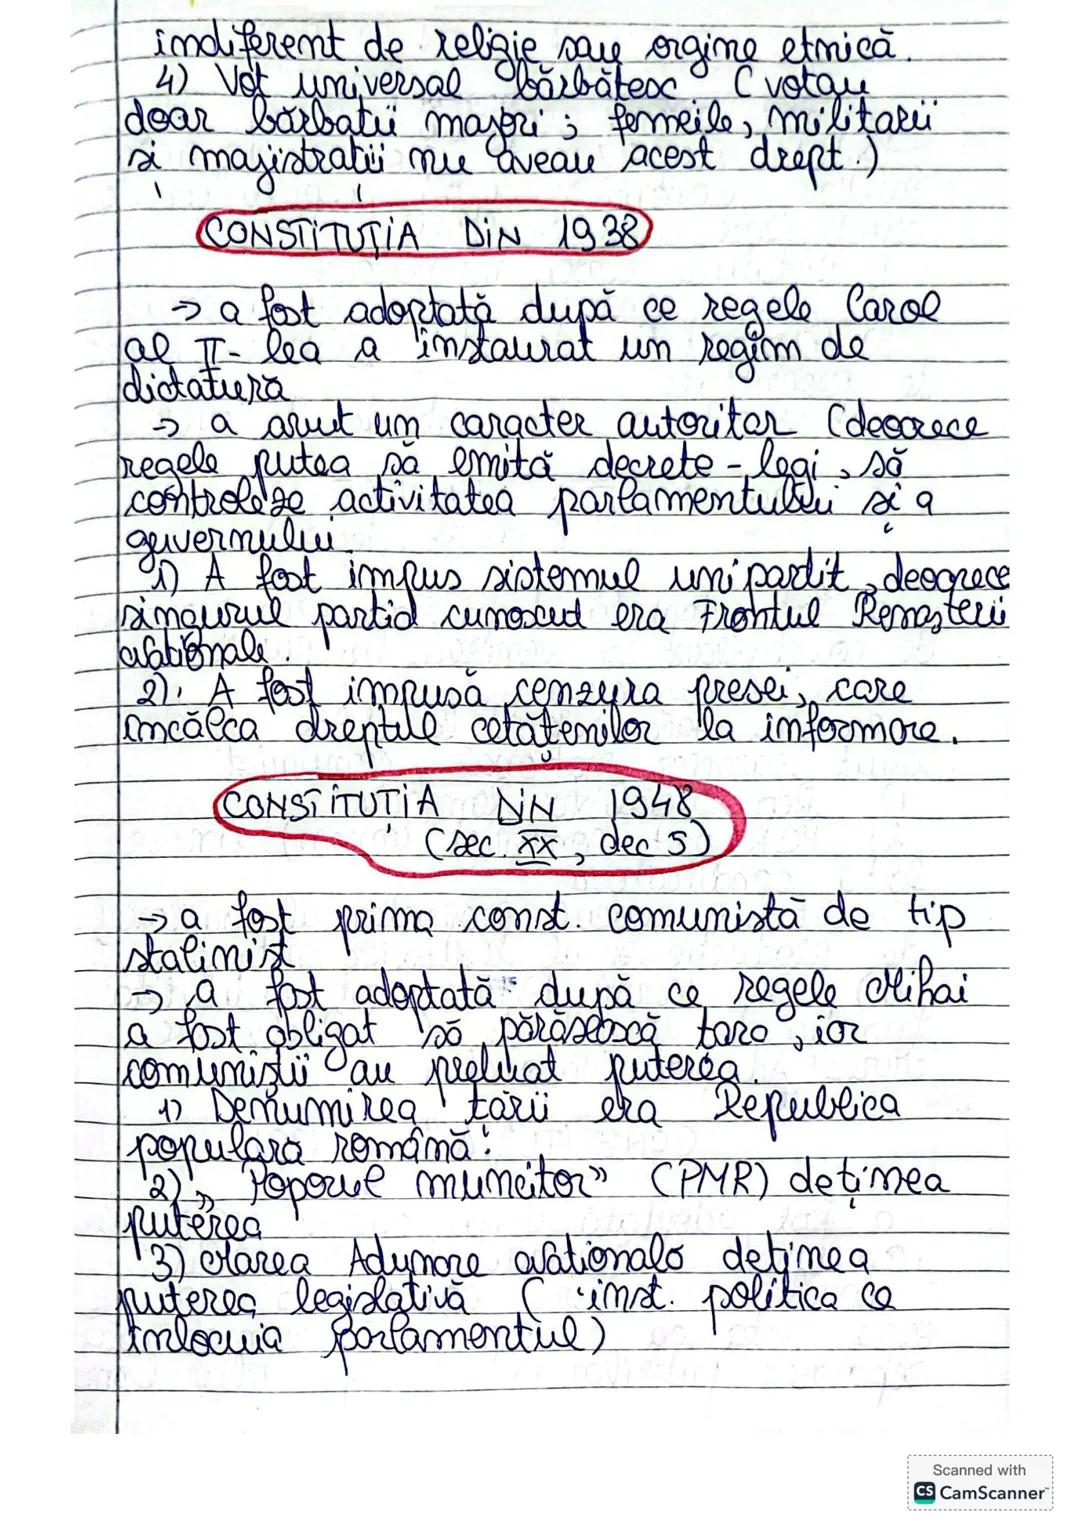 indiferent de religie sau orgine etnică.
4) Vot universal bărbătesc (votau
doar bărbații majori; femeile, militarii
și majistrații nu aveau acest drept.)
CONSTITUȚIA DIN 1938
→ a fost adoptată după ce regele Carol
al II-lea a instaurat un regim de
dictatură
→ a avut un caracter autoritar (deoarece
regele putea să emită decrete-legi, să
controleze activitatea parlamentului și a
guvernului.
1) A fost impus sistemul unipartit, deoarece
singurul partid cunoscut era Frontul Renașterii
Naționale.
2). A fost impusă cenzura presei, care
încălca dreptul cetățenilor la informare.
CONSTITUȚIA DIN 1948
(sec. XX, dec 5)
→ a fost prima const. comunistă de tip
stalinist
→ a fost adoptată după ce regele Mihai
a fost obligat să părăsească țara, iar
comuniștii au preluat puterea.
1) Denumirea țării era Republica
populara română.
2) „Poporul muncitor” (PMR) deținea
puterea
3) Marea Adunare Națională deținea
puterea legislativă (inst. politica ce
înlocuia parlamentul)
Scanned with
CS CamScanner